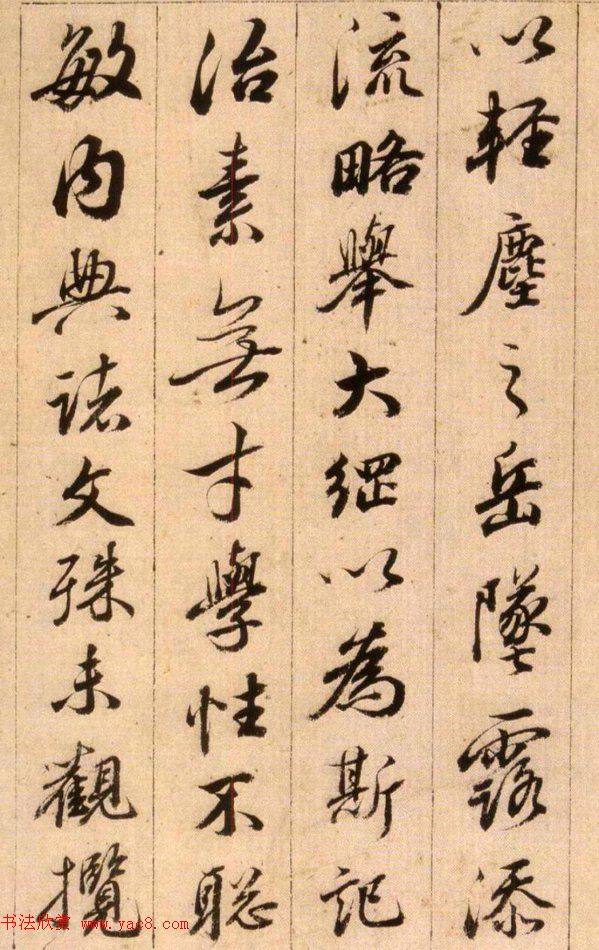 以輕塵之岳墜露添
流略舉大綱以為斯記
治素無才學性不聡
敏内典諸文殊未觀攬
书法欣赏 www.yac8.com